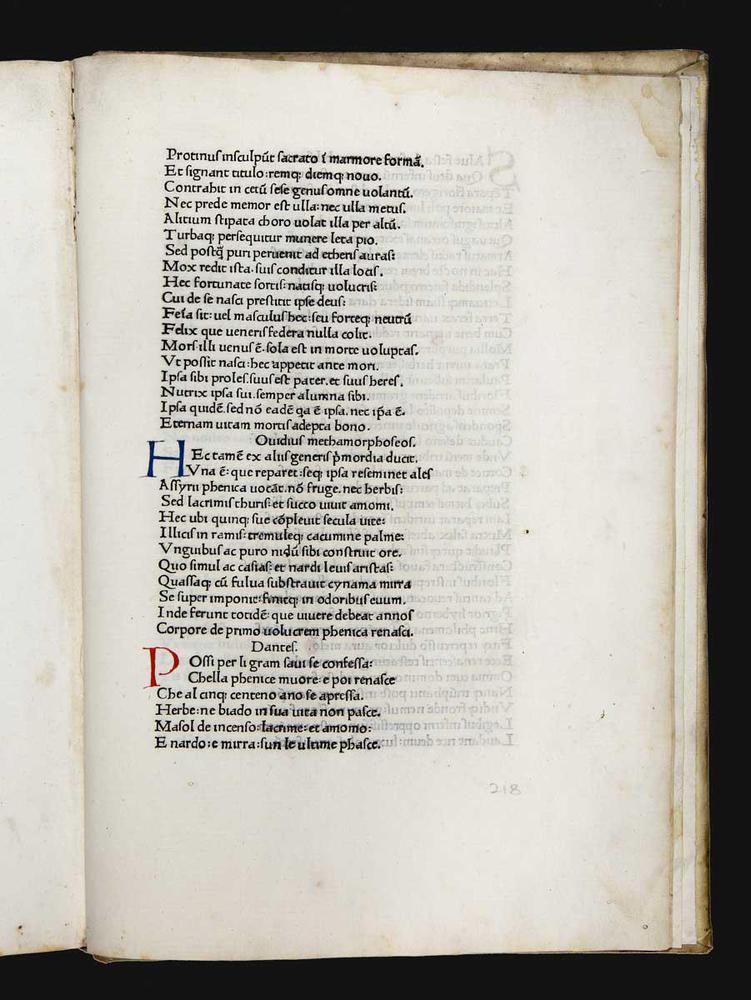 Protinuſ inſculpūt ſacrato ī marmore formā.
Et ſignant titulo :remq; diemq; nouo.
Contrahit in cetū ſeſe genuſ omne uolantū.
Nec prede memor eſt ulla: nec ulla metuſ.
Alitium ſtipata choro uolat illa per altū.
Turbaq; perſequitur munere leta pio.
Sed poſtq̄ puri peruenit ad etheriſ auraſ:
Mox redit iſta. ſuiſ conditur illa lociſ.
Hec fortunate ſortiſ: natiſq; uolucriſ:
Cui de ſe naſci preſtitit ipſe deuſ:
Feīa ſit: uel maſculuſ hec: ſeu forteq; neutrū
Felix que ueneriſ federa nulla colit.
Morſ illi uenuſ ē. ſola eſt in morte uoluptaſ.
Vt poſſit naſci: hec appetit ante mori.
Ipſa ſibi proleſ. ſuuſ eſt pater. et ſuuſ hereſ.
Nutrix ipſa ſui. ſemper alumna ſibi.
Ipſa quidē. ſed nō eadē qa ē ipſa. nec ip̄a ē.
Eternam uitam mortiſ adepta bono.
Ouidiuſ methamorphoſeoſ.
HEc tamē ex aliiſ generiſ p̄mordia ducit.
Vna ē: que reparet :ſeq; ipſa reſeminet aleſ
Aſſyrii phenica uocāt. nō fruge. nec herbiſ:
Sed lacrimiſ thuriſ: et ſucco uiuit amomi.
Hec ubi quinq; ſue cōpleuit ſecula uite:
Illiciſ in ramiſ: tremuleq; cacumine palme:
Vnguibuſ ac puro nidū ſibi conſtruit ore.
Quo ſimul ac caſiaſ: et nardi leuiſ ariſtaſ:
Quaſſaq; cū fulua ſubſtrauit cynama mirra
Se ſuper imponit: finitq; in odoribuſ euum.
Inde ferunt totidē: que uiuere debeat annoſ
Corpore de primo uolucrem phenica renaſci.
Danteſ.
POſſi per li gram ſaui ſe confeſſa:
Chella phenice muore: e poi renaſce
Che al cinq; centeno āno ſe apreſſa.
Herbe: ne biado in ſua uita non paſce.
Maſol de incenſo: lacrime: et amomo:
E nardo: e mirra: ſun le ultime phaſce.
218